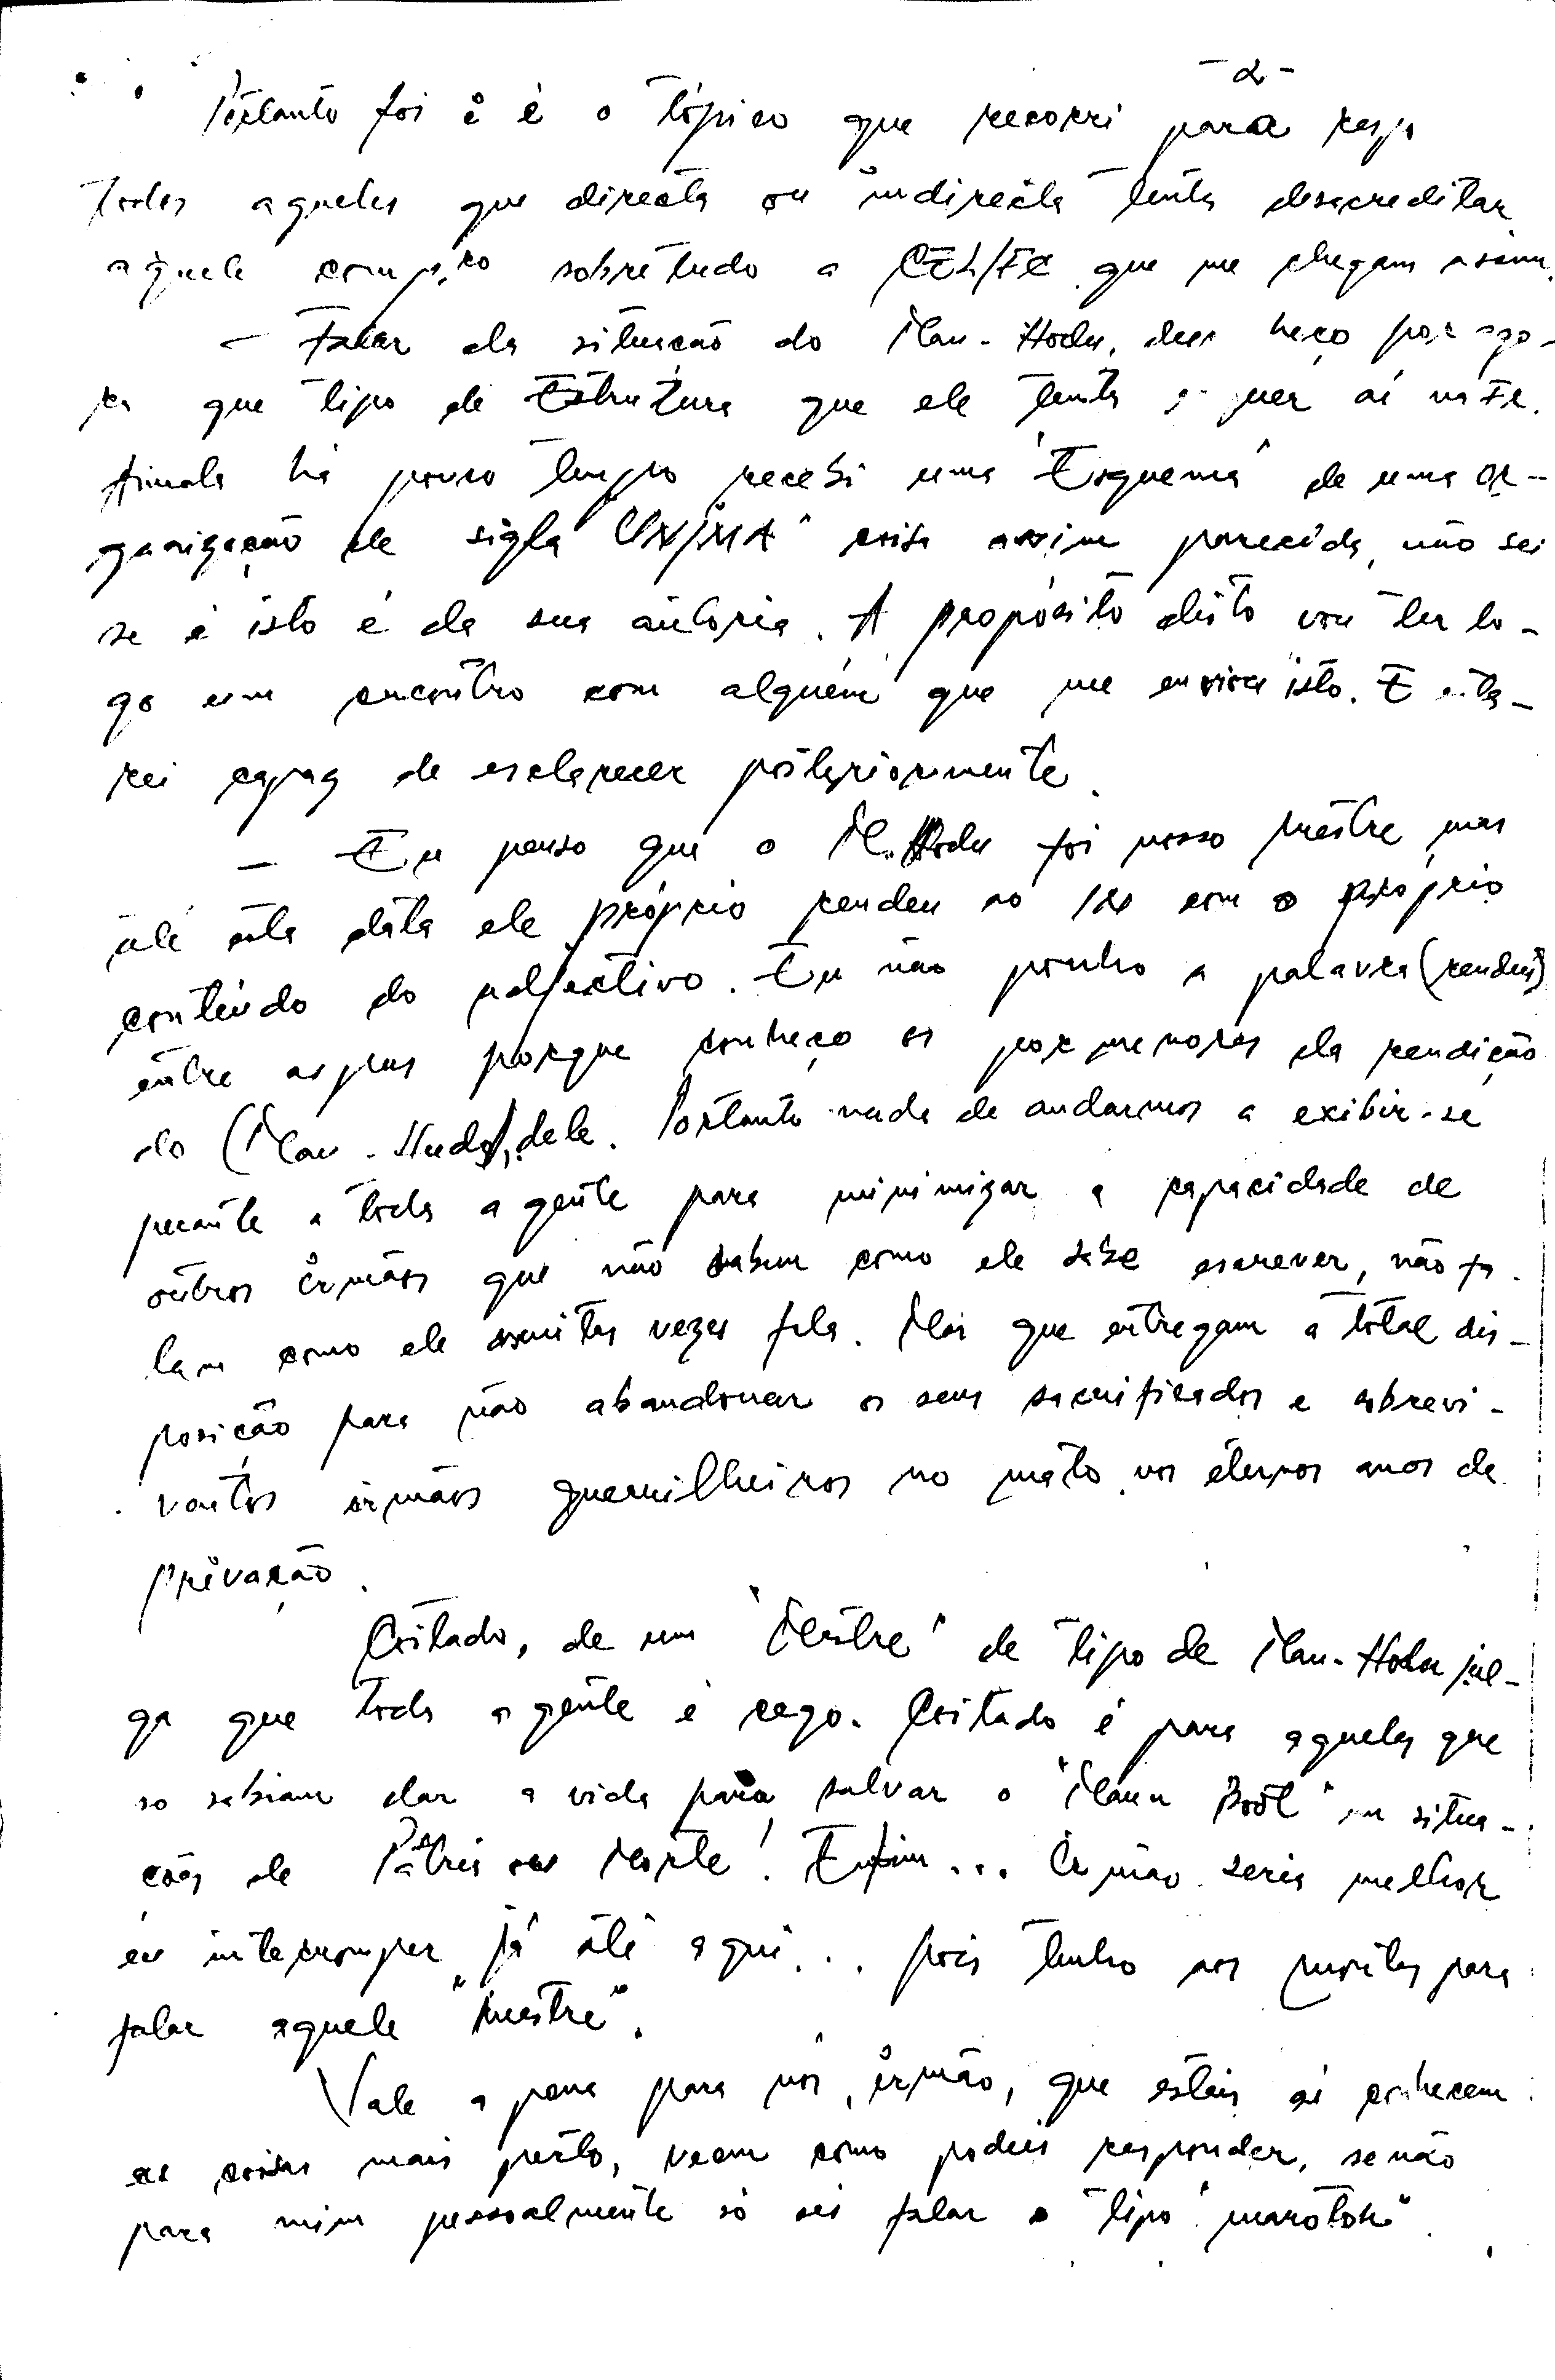 - 2 -
Portanto foi e é o tópico que recorri para resp
todos aqueles que directa ou indirecta tenta desacreditar
aquele sobretudo a CEL/FE que me chegam assim.
- Falar da situação do Mau-Hodu, desconheço por ago-
ra que tipo de Estrutura que ele tenta quer aí na FE.
Ainda há pouco tempo recebi uma "Esquema" de uma or-
ganização de sigla coisa assim parecida, não sei
se é isto é da sua autoria. A propósito disto vou ter lo-
go um encontro com alguém que me enviou isto. E esta-
rei capaz de esclarecer posteriormente.
- Eu penso que o M. Hodu foi nosso mestre, mas
até esta data ele próprio rendeu ao IN com o próprio
conteúdo do adjectivo. Eu não ponho a palavra (rendeu)
entre aspas porque conheço os pormenores da rendição
do (Mau-Hudo), dele. Portanto nada de andarmos a exibir-se
perante a toda a gente para minimizar a capacidade de
outros irmãos que não sabem como ele sabe escrever, não fa-
lam como ele muitas vezes fala. Mas que entregam a total dis-
posição para não abandonar os seus sacrificados e sobrevi-
ventes irmãos guerrilheiros no mato nos eternos anos de
privação.
Coitado, de um "Mestre" de tipo de Mau-Hodu jul-
ga que toda a gente é cego. Coitado é para aqueles que
so sabiam dar a vida para salvar o "Maun Boot" em situa-
ções de Pátria ou Morte! Enfim... Irmão seria melhor
eu interromper já até aqui... pois tenho aos muitos para
falar aquele "mestre".
Vale a pena para vós, irmão, que estais aí conhecem
as coisas mais perto, veem como podeis responder, senão
para mim pessoalmente só sei falar o tipo "marotok".